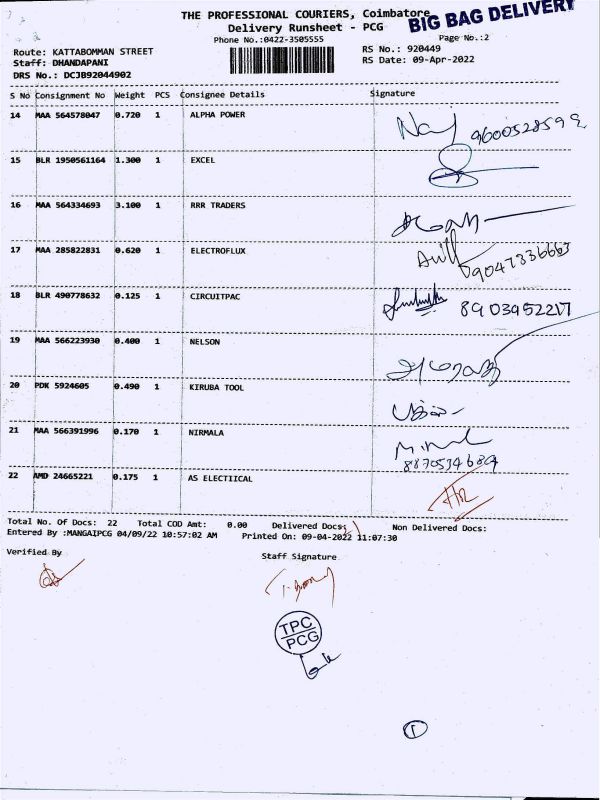 THE PROFESSIONAL COURIERS, Coimbatore
BIG BAG DELIVERY
Delivery Runsheet - PCG
Phone No.:0422-3505555
Page No.:2
Route: KATTABOMMAN STREET
RS No.: 920449
Staff: DHANDAPANI
RS Date: 09-Apr-2022
DRS No.: DCJB92044902
S No Consignment No Weight PCS Consignee Details Signature
14 MAA 564578047 0.720 1 ALPHA POWER
9600528592
15 BLR 1950561164 1.300 1 EXCEL
16 MAA 564334693 3.100 1 RRR TRADERS
17 MAA 285822831 0.620 1 ELECTROFLUX
09047336663
18 BLR 490778632 0.125 1 CIRCUITPAC
8903952217
19 MAA 566223930 0.400 1 NELSON
20 PDK 5924605 0.490 1 KIRUBA TOOL
21 MAA 566391996 0.170 1 NIRMALA
8870534689
22 AMD 24665221 0.175 1 AS ELECTIICAL
Total No. Of Docs: 22 Total COD Amt: 0.00 Delivered Docs: Non Delivered Docs:
Entered By :MANGAIPCG 04/09/22 10:57:02 AM Printed On: 09-04-2022 11:07:30
Verified By
Staff Signature
TPC
PCG
1